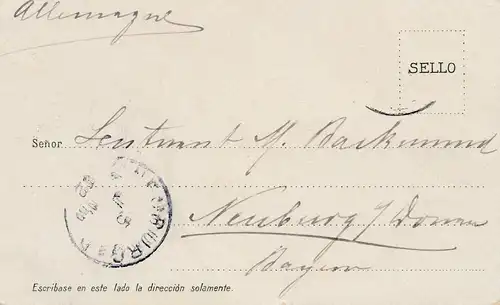 Allemagne
SELLO
Señor Leutnant M. Backmund
Neuburg / Donau
Bayern
Escríbase en este lado la dirección solamente.